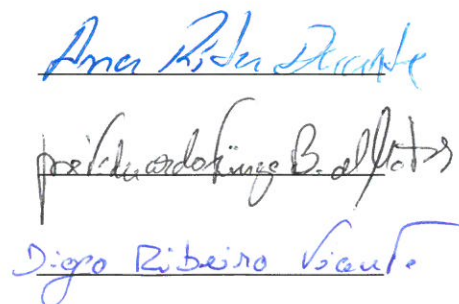 Ana Rita Duarte
José Eduardo B. de Matos
Diogo Ribeiro Vicente